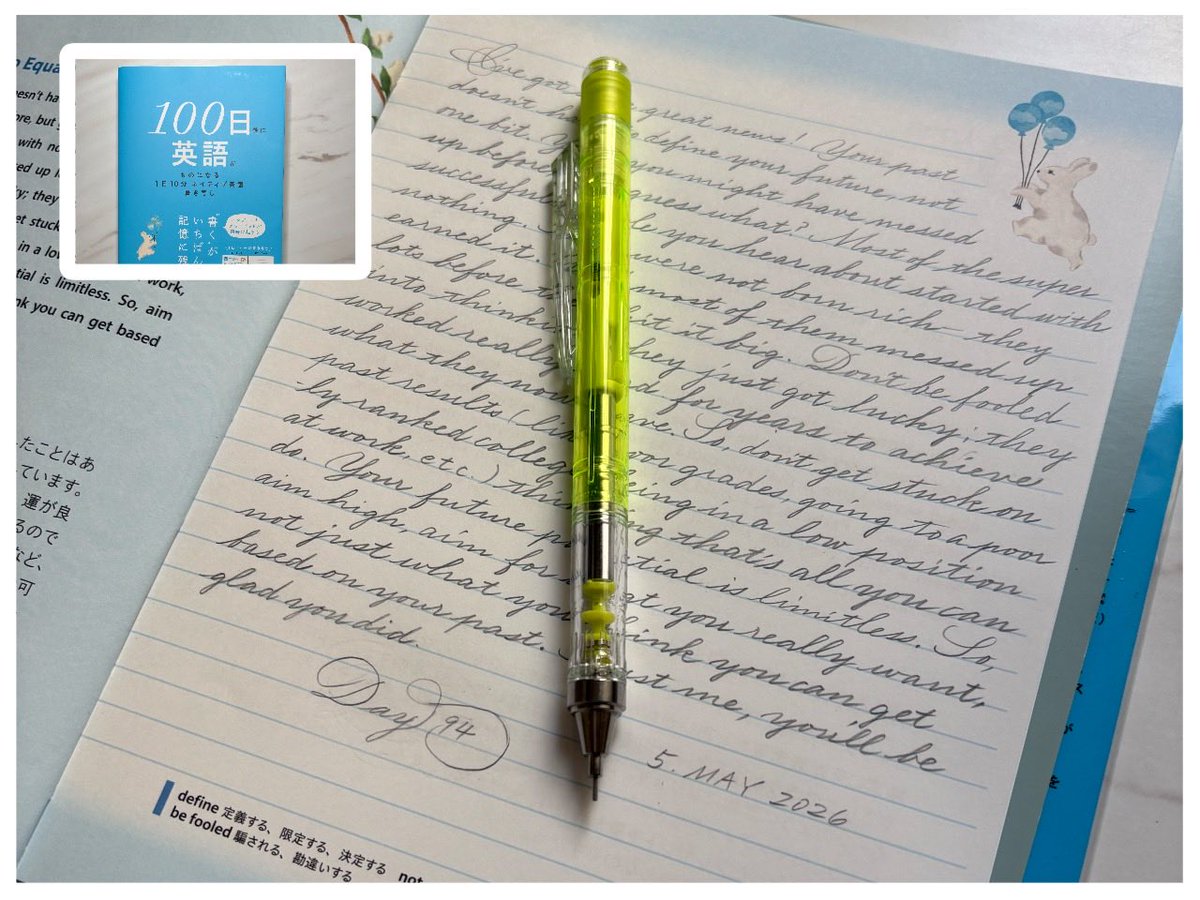 100日後に
英語が
ものになる
1日10分 ネイティブ英語
書き写し
"書く"が
いちばん
記憶に残
with no
they
stuck
in a
work,
is limitless. So, aim
you can get based
たことはあ
ています。
運が良
るので
など、
可
I've got great news! Your past
doesn't define your future, not
one bit. you might have messed
up before what? Most of the super
successful you hear about started with
nothing were not born rich— they
earned it. most of them messed up
lots before hit it big. Don't be fooled
into they just got lucky; they
worked really for years to achieve
what they now have. So, don't get stuck on
past results ( poor grades, going to a poor
ly ranked being in a low position
at work, etc.) that's all you can
do. Your future is limitless. So,
aim high, aim for what you really want,
not just what you think you can get
based on your past. Trust me, you'll be
glad you did.
Day 94
5. MAY 2026
define 定義する、限定する、決定する not
be fooled 騙される、勘違いする